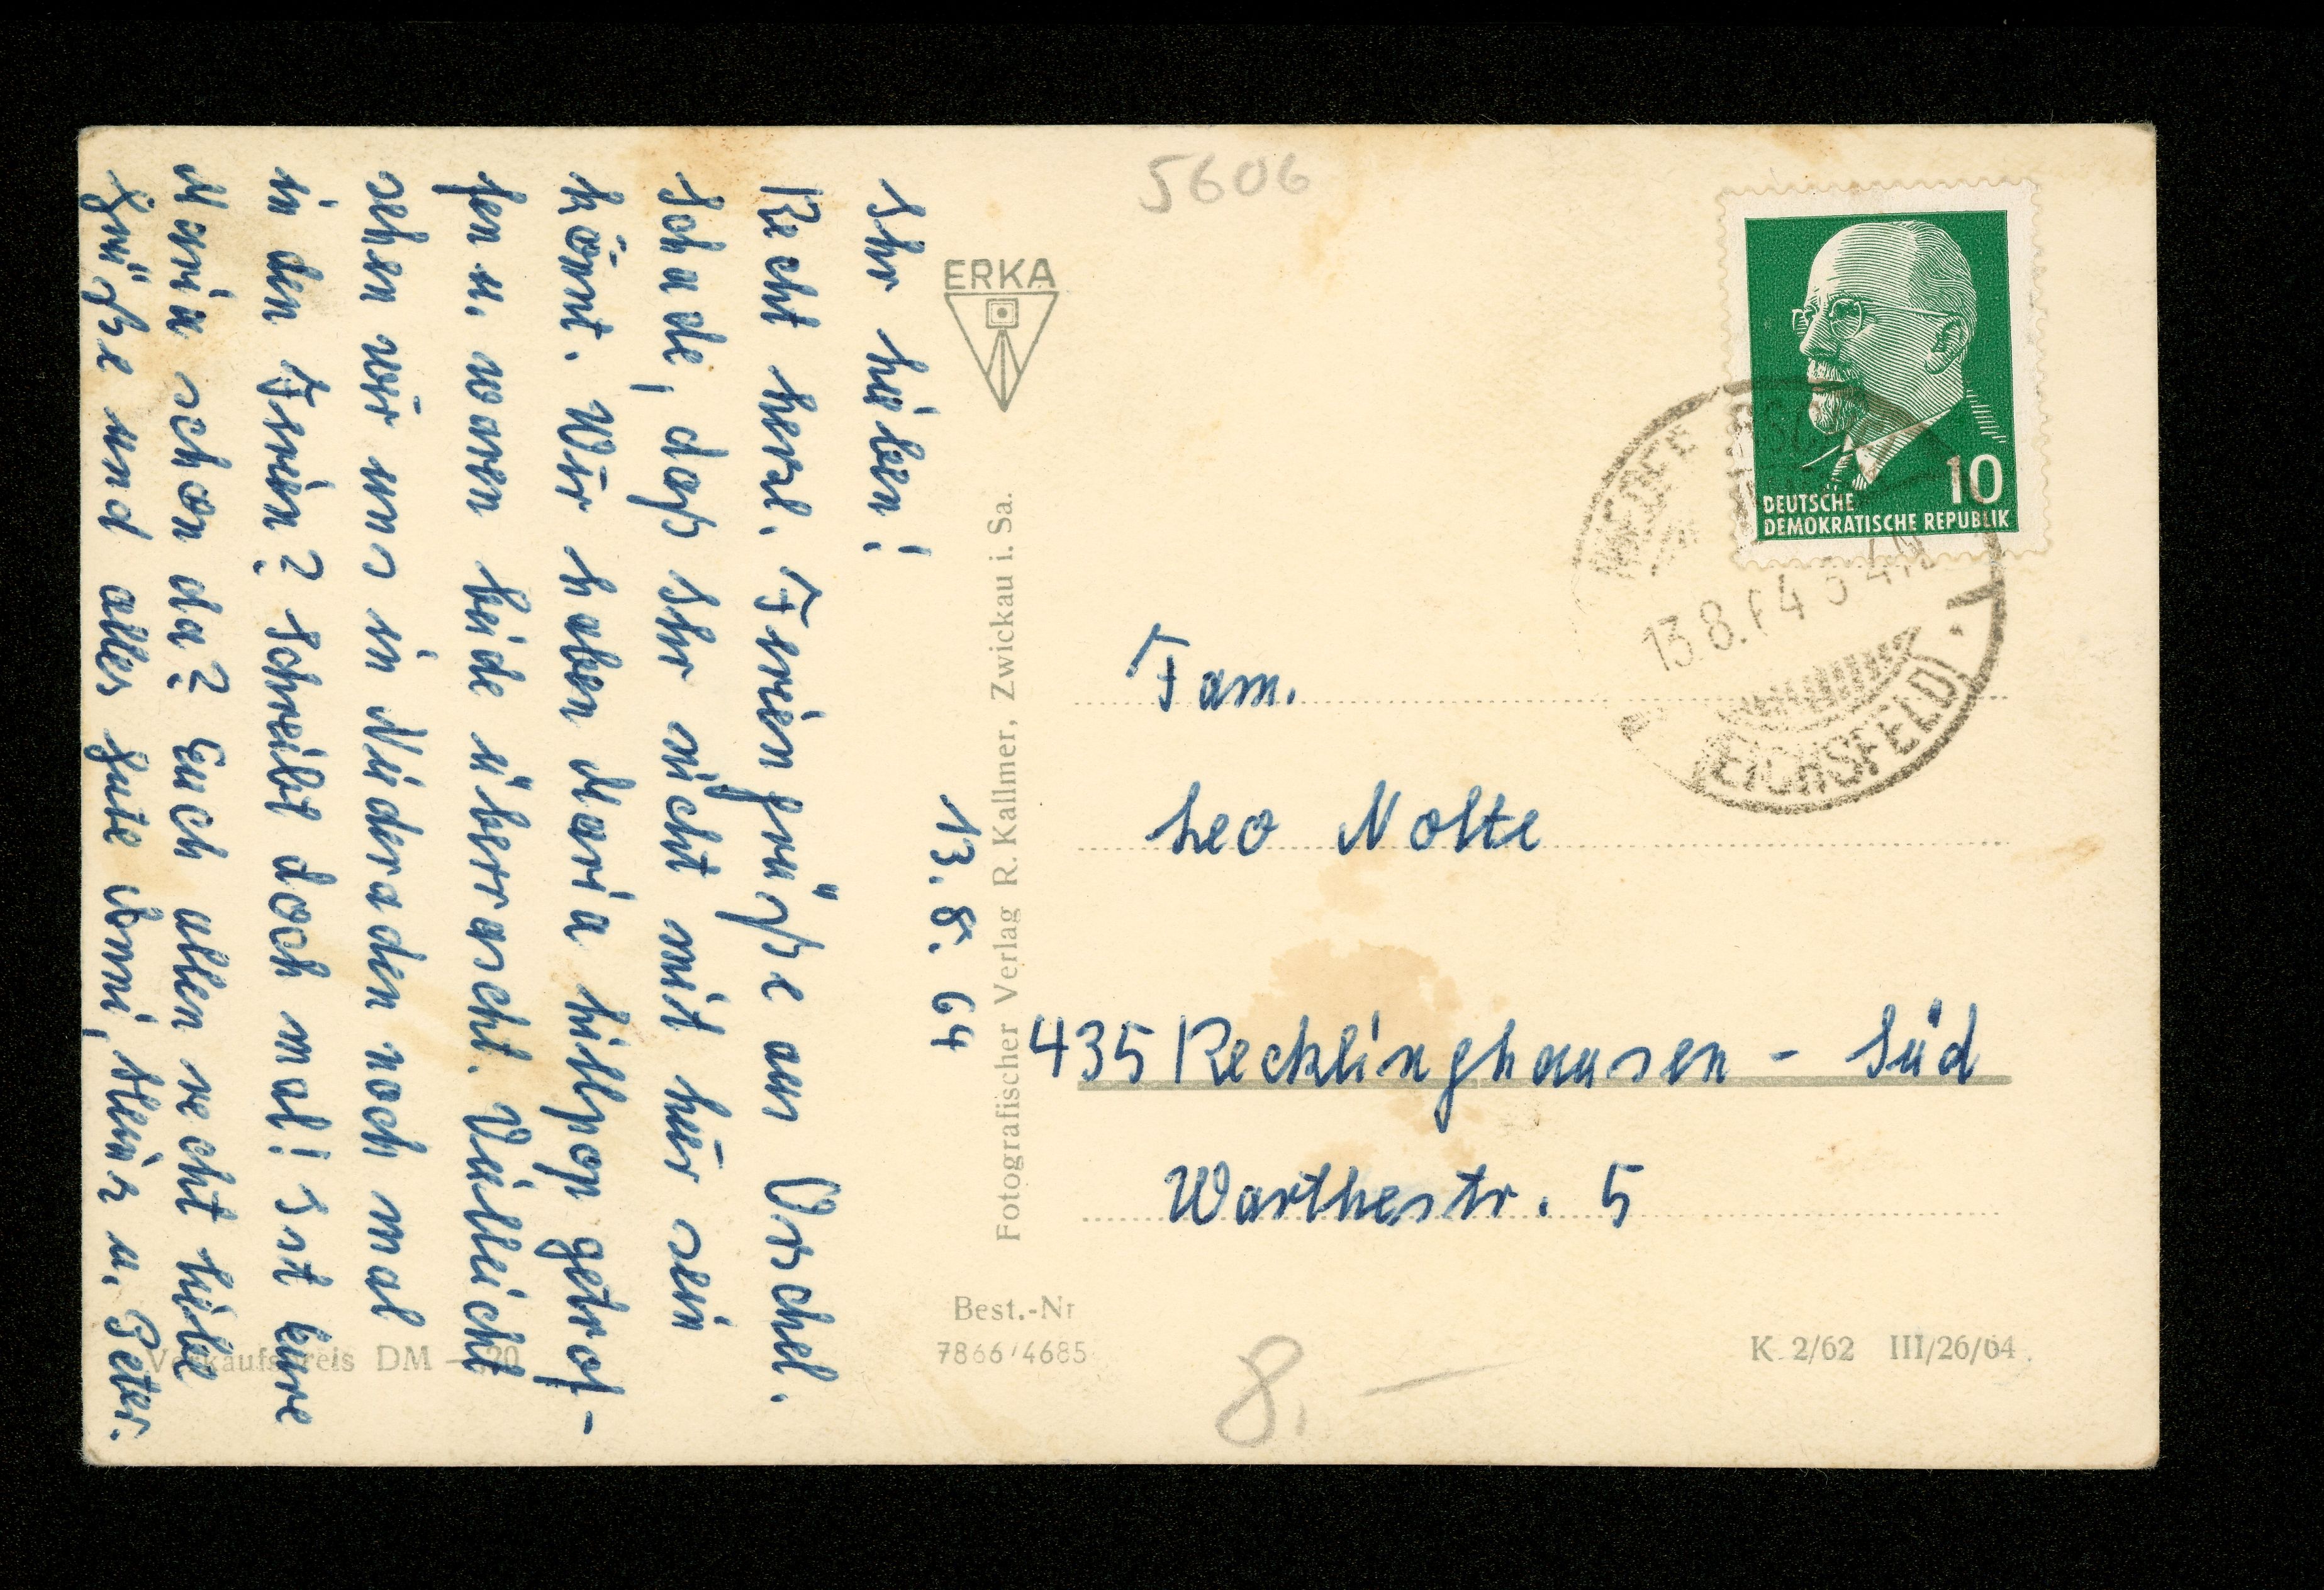 13. 8. 64
Ihr Lieben!
Recht herzl. Feriengrüße aus Orschel.
Schade, daß Ihr nicht mit hier sein
könnt. Wir haben Maria Hillpop getrof-
fen u. waren beide überrascht. Vielleicht
sehen wir uns in Niederaden noch mal
in den Ferien? Schreibt doch mal! Ist Eure
Maria schon da? Euch allen recht liebe
Grüße und alles Gute Anni, Heinz u. Peter.
ERKA
Fotografischer Verlag R. Kallmer, Zwickau i. Sa.
Best.-Nr
7866/4685
Verkaufspreis DM -,20
5606
DEUTSCHE
DEMOKRATISCHE REPUBLIK
10
13.8.64
EICHSFELD
Fam.
Leo Nolte
435 Recklinghausen - Süd
Warthestr. 5
K 2/62 III/26/64
8,-